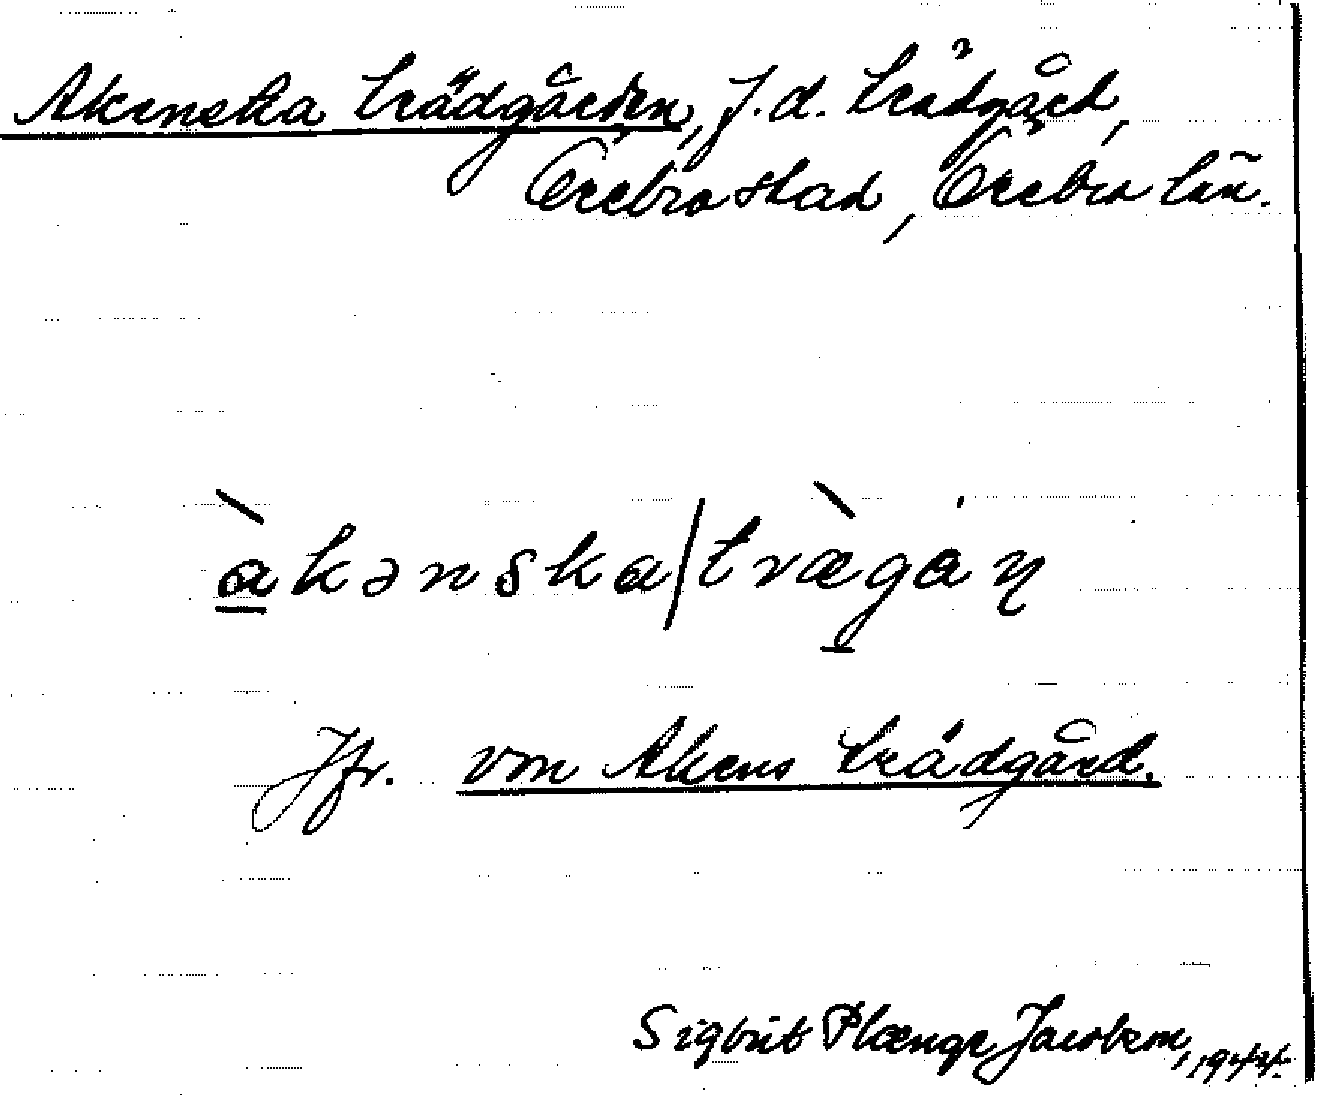 Akenska trädgården, f.d. trädgård,
Örebro stad, Örebro län.
àkənska/tràgán
Jfr. von Akens trädgård.
Sigbrit Plænge Jacobson, 1944.